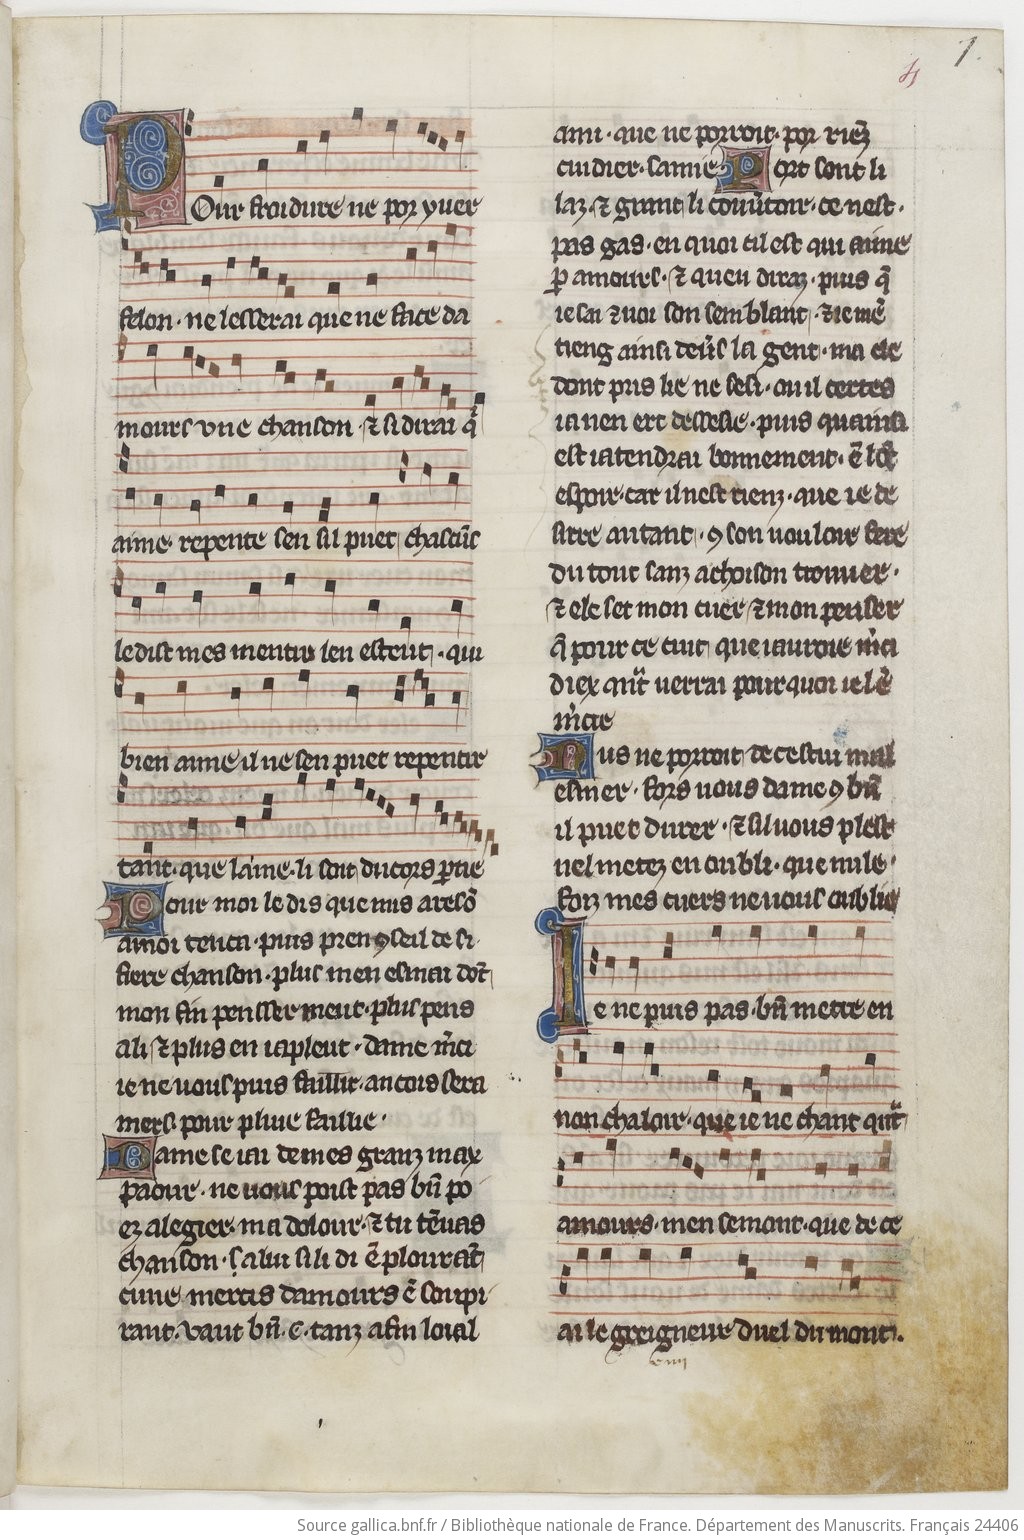 4 1.
Pour froidure ne por yuer
felon · ne lesserai que ne face da
mours vne chanson · ⁊ si dirai q̃
aime · repente sen sil puet chascũs
le dist mes mentiu len esteut · qui
bien aime il ne sen puet repentir
tant · que lame · li soit du cors ꝑtie
Pour moi le dis que mis a resõ
amoi tenca · puis pren ꝯseil de si·
fiere chanson · plus men esmai dõt
mon fin pensser meut · plus pens
a li ⁊ plus en iapleut · dame m̃ci
ie ne uous puis faillir · ancois sera
mers pour pluie faillie ·
Dame se iai de mes grauz max
paour · ne uous poist pas bñ po
ez alegier · ma dolour · ⁊ tu tẽuas
chanson · salu si li di ẽ plourãt
cune mercis damours ẽ soupi
rant · vaut bñ · c · tanz a fin loial
ami · que ne porroit · por riẽz
cuidier · samie Fort sont li
laz · ⁊ grant li couũtoir · ce nest ·
pas gas · en quoi cil est qui aime
ꝑ amours · ⁊ quen diraz · puis q̃
ie sai ⁊ uoi son semblant · ⁊ ie mẽ
tieng ainsi deũs la gent · ma ele
dont pris lie ne sesi · ou il certes
ia nen ert dessesie · puis quainsi
est iatendrai bonnement · ẽ lõc
espoir · car il nest rienz · que ie de
sirre autant · ꝯ son uouloir fere
du tout sanz achoison trouuer ·
⁊ ele set mon cuer ⁊ mon penser
q̃ pour ce cuit que iauroie m̃ci
diex q̃nt uerrai pour quoi ie lẽ
m̃cie
Nus ne porroit de cestui mal
esmer · fors uous dame ꝯ bñ
il puet durer · ⁊ sil uous plest
nel metez en oubli · que nule ·
foiz mes cuers ne uous oublie
Ie ne puis pas · bñ mettre en
non chaloir · que ie ne chant q̃nt
amours · men semont · que de ce
ai le greigneur duel du mont ·
Source gallica.bnf.fr / Bibliothèque nationale de France. Département des Manuscrits. Français 24406